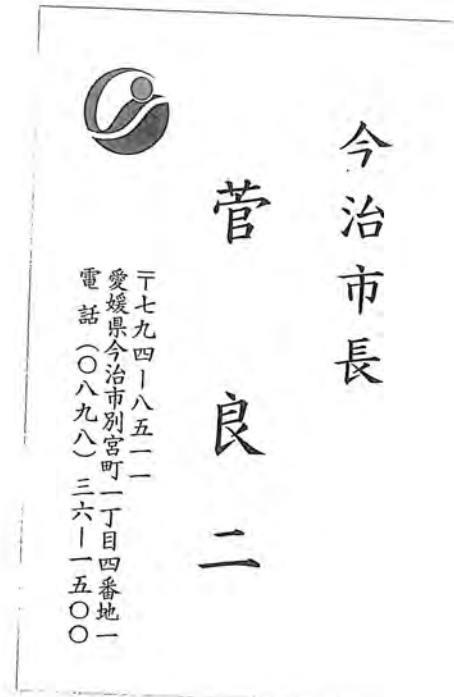 今治市長
菅良二
〒七九四ー八五一一
愛媛県今治市別宮町一丁目四番地一
電話（〇八九八）三六ー一五〇〇